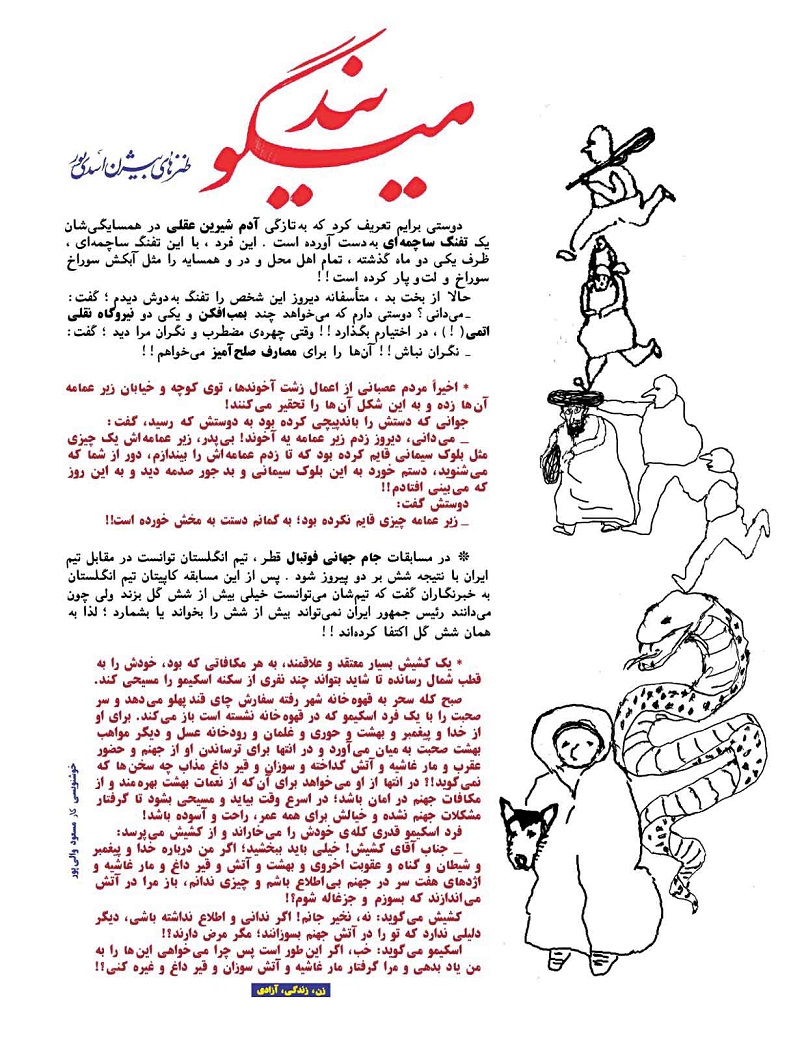 میگویند
طنزهای بیژن اسدی‌پور
دوستی برایم تعریف کرد که به‌تازگی آدم شیرین عقلی در همسایگی‌شان
یک تفنگ ساچمه‌ای به‌دست آورده است . این فرد ، با این تفنگ ساچمه‌ای ،
ظرف یکی دو ماه گذشته ، تمام اهل محل و در و همسایه را مثل آبکش سوراخ
سوراخ و لت‌و پار کرده است ! !
حالا از بخت بد ، متأسفانه دیروز این شخص را تفنگ به‌دوش دیدم ؛ گفت :
ـ می‌دانی ؟ دوستی دارم که می‌خواهد چند بمب‌افکن و یکی دو نیروگاه نقلی
اتمی( ! ) ، در اختیارم بگذارد ! ! وقتی چهره‌ی مضطرب و نگران مرا دید ؛ گفت :
ـ نگران نباش ! ! آن‌ها را برای مصارف صلح‌آمیز می‌خواهم ! !
* اخیراً مردم عصبانی از اعمال زشت آخوندها، توی کوچه و خیابان زیر عمامه
آن‌ها زده و به این شکل آن‌ها را تحقیر می‌کنند!
جوانی که دستش را باندپیچی کرده بود به دوستش که رسید، گفت:
ـ می‌دانی، دیروز زدم زیر عمامه یه آخوند! بی‌پدر، زیر عمامه‌اش یک چیزی
مثل بلوک سیمانی قایم کرده بود که تا زدم عمامه‌اش را بیندازم، دور از شما که
می‌شنوید، دستم خورد به این بلوک سیمانی و بد جور صدمه دید و به این روز
که می‌بینی افتادم!!
دوستش گفت:
ـ زیر عمامه چیزی قایم نکرده بود؛ به گمانم دستت به مخش خورده است!!
❊ در مسابقات جام جهانی فوتبال قطر ، تیم انگلستان توانست در مقابل تیم
ایران با نتیجه شش بر دو پیروز شود . پس از این مسابقه کاپیتان تیم انگلستان
به خبرنگاران گفت که تیم‌شان می‌توانست خیلی بیش از شش گل بزند ولی چون
می‌دانند رئیس جمهور ایران نمی‌تواند بیش از شش را بخواند یا بشمارد ؛ لذا به
همان شش گل اکتفا کرده‌اند ! !
* یک کشیش بسیار معتقد و علاقمند، به هر مکافاتی که بود، خودش را به
قطب شمال رسانده تا شاید بتواند چند نفری از سکنه اسکیمو را مسیحی کند.
صبح کله سحر به قهوه‌خانه شهر رفته سفارش چای قند پهلو می‌دهد و سر
صحبت را با یک فرد اسکیمو که در قهوه‌خانه نشسته است باز می‌کند. برای او
از خدا و پیغمبر و بهشت و حوری و غلمان و رودخانه عسل و دیگر مواهب
بهشت صحبت به میان می‌آورد و در انتها برای ترساندن او از جهنم و حضور
عقرب و مار غاشیه و آتش گداخته و سوزان و قیر داغ مذاب چه سخن‌ها که
نمی‌گوید!؟ در انتها از او می‌خواهد برای آن‌که از نعمات بهشت بهره‌مند و از
مکافات جهنم در امان باشد؛ در اسرع وقت بیاید و مسیحی بشود تا گرفتار
مشکلات جهنم نشده و خیالش برای همه عمر، راحت و آسوده باشد!
فرد اسکیمو قدری کله‌ی خودش را می‌خاراند و از کشیش می‌پرسد:
ـ جناب آقای کشیش! خیلی باید ببخشید؛ اگر من درباره خدا و پیغمبر
و شیطان و گناه و عقوبت اخروی و بهشت و آتش و قیر داغ و مار غاشیه و
اژدهای هفت سر در جهنم بی‌اطلاع باشم و چیزی ندانم، باز مرا در آتش
می‌اندازند که بسوزم و جزغاله شوم؟!
کشیش می‌گوید: نه، نخیر جانم! اگر ندانی و اطلاع نداشته باشی، دیگر
دلیلی ندارد که تو را در آتش جهنم بسوزانند؛ مگر مرض دارند؟!
اسکیمو می‌گوید: خب، اگر این‌طور است پس چرا می‌خواهی این‌ها را به
من یاد بدهی و مرا گرفتار مار غاشیه و آتش سوزان و قیر داغ و غیره کنی؟!
زن، زندگی، آزادی
خوشنویسی کار مسعود والی‌پور